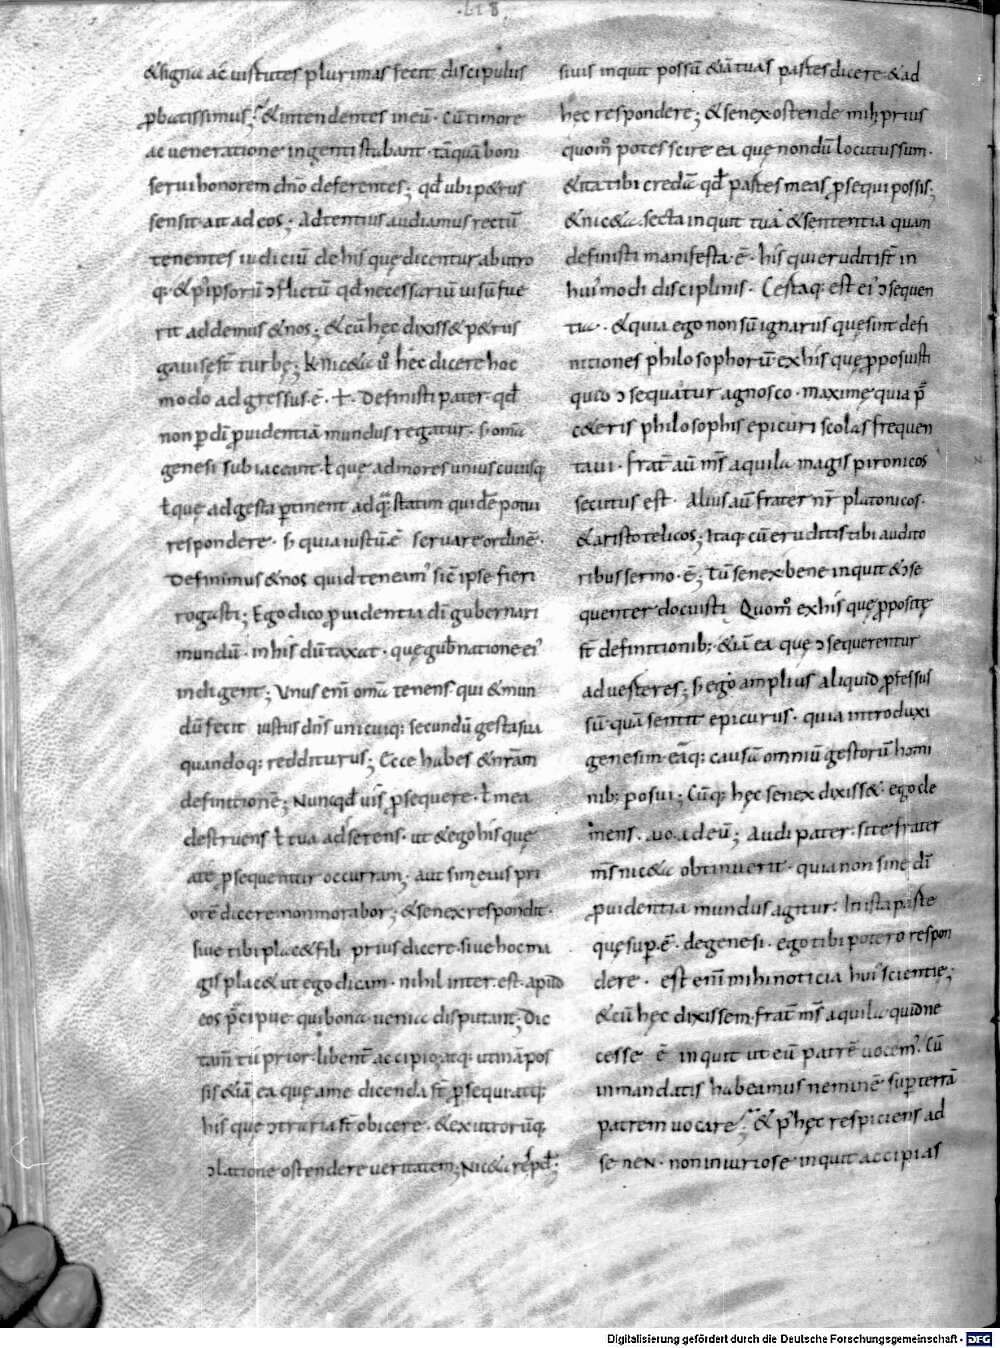 ·LT8·
&signa ac̄ uirtutes plurimas fecit discipulus
p̱batissimus; &intendentes ineū· Cūtimore
ac ueneratione ingenti stabant· tāquā boni
serui honorem dn̄o deferentes; qđ ubi p&rus
sensit ait ad eos; Adtentius audiamus rectū
tenentes iudiciū de his quę dicentur ab utro
q; & p' ipsorū ɔflictū qđ necessariū uisū fue
rit addemus & nos; & cū hęc dixiss& p&rus
gauisę sт̄ turbę; Nic&a u° hęc dicere hoc
modo adgressus ē· Definisti pater qđ
non p̱ dī p̱uidentiā mundus regatur· s; om̄a
genesi subiaceant· ł quę ad mores unius cuiusq;
ł quę ad gesta ptinent ad q; statim quidē potui
respondere· s; quia iustū ē seruare ordinē·
Definimus & nos quid teneam' sic & ipse fieri
rogasti; Ego dico p̱uidentia dī gubernari
mundū· in his dū taxat· quę gub̄natione ei'
indigent; Unus eni om̄a tenens· qui & mun
dū fecit iustus dn̄s unicuiq; secundū gesta sua
quandoq; redditurus; Ecce habes & nr̄am
definitionē; Nunc qđ uis p̱sequere· ł mea
destruens ł tua adserens· ut & ego his quę
a te p̱sequentur occurram; aut si me uis pri
orē dicere non morabor; & senex respondit·
siue tibi plac& fili prius dicere· siue hoc ma
gis plac& ut ego dicam· nihil inter est· apud
eos p̄cipue qui bona uenia disputant; Dic
tam̄ tu prior· libent̄ accipio; atq; utinā pos
sis &iā ea quę a me dicenda sт̄ p̱sequi· atq;
his quę ɔtraria sт̄ obicere· & ex utrorūq;
ɔlatione ostendere ueritatem; Nic&a rēpđ;
si uis inquit possū &iā tuas partes dicere & ad
hęc respondere; & senex ostende mihi prius
quom° potes scire ea quę nondū locutus sum·
& ita tibi credā qđ partes meas p̱sequi possis;
& nic&a· secta inquit tua & sententia quam
definisti manifesta ē· his qui eruditi sт̄ in
hui'modi disciplinis· Certaq; est ei' ɔsequen
tia· & quia ego non sū ignarus quę sint defi
nitiones philosophorū ex his quę p̱posuisti
quid ɔsequatur agnosco· maxime quia p̄
c&eris philosophis epicuri scolas frequen
taui· frat̄ aū ms̄ aquila magis pironicos
secutus est· Alius aū frater nr̄ platonicos·
& aristotelicos; Itaq; cū eruditis tibi audito
ribus sermo ē; Tū senex bene inquit & ɔse
quenter docuisti Quom° ex his quę p̱positę
sт̄ definitionib; &iā ea quę ɔsequerentur
aduerteres; s; ego amplius aliquid p̱fessus
sū quā sentit epicurus· quia introduxi
genesim eāq; causā omniū gestorū homi
nib; posui; Cūq; hęc senex dixiss& ego cle
mens uo ad eū; Audi pater· si te frater
ms̄ nic&a obtinuerit· quia non sine dī
p̱uidentia mundus agitur· In ista parte
quę sup ē· de genesi· ego tibi potero respon
dere· est eni mihi noticia hui' scientię;
& cū hęc dixissem· frat̄ ms̄ aquila quid ne
cesse ē inquit ut eū patrē uocem'· Cū
in mandatis habeamus neminē sup̱ terrā
patrem uocare; & p' hęc respiciens ad
senen· non iniuriose inquit accipias
Digitalisierung gefördert durch die Deutsche Forschungsgemeinschaft - DFG